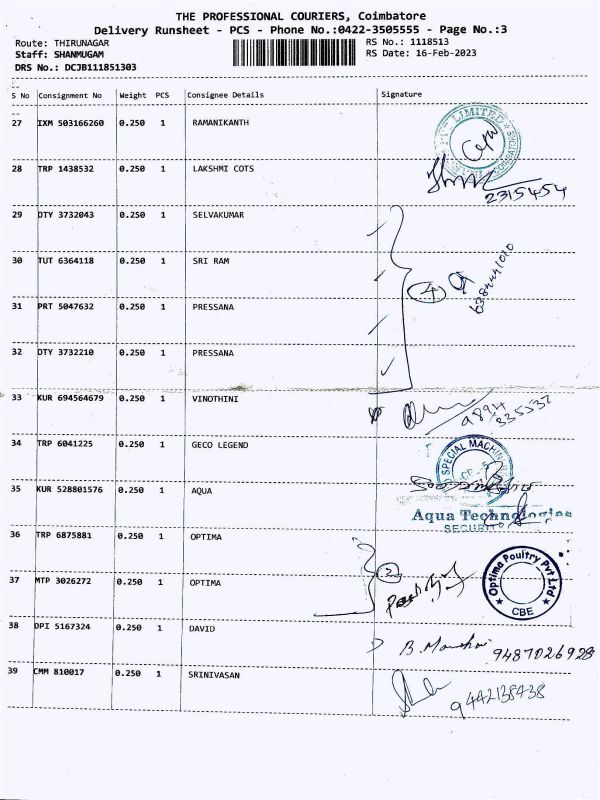 THE PROFESSIONAL COURIERS, Coimbatore
Delivery Runsheet - PCS - Phone No.:0422-3505555 - Page No.:3
Route: THIRUNAGAR RS No.: 1118513
Staff: SHANMUGAM RS Date: 16-Feb-2023
DRS No.: DCJB111851303
S No Consignment No Weight PCS Consignee Details Signature
27 IXM 503166260 0.250 1 RAMANIKANTH
LIMITED
COIMBATORE
28 TRP 1438532 0.250 1 LAKSHMI COTS
2315454
29 DTY 3732043 0.250 1 SELVAKUMAR
30 TUT 6364118 0.250 1 SRI RAM
4
31 PRT 5047632 0.250 1 PRESSANA
32 DTY 3732210 0.250 1 PRESSANA
33 KUR 694564679 0.250 1 VINOTHINI
9894
835537
34 TRP 6041225 0.250 1 GECO LEGEND
SPECIAL
35 KUR 528801576 0.250 1 AQUA
Aqua Technologies
SECURITY
36 TRP 6875881 0.250 1 OPTIMA
2
Optima Poultry Pvt Ltd
CBE
37 MTP 3026272 0.250 1 OPTIMA
38 DPI 5167324 0.250 1 DAVID
B. 9487026928
39 CMM 810017 0.250 1 SRINIVASAN
9442138438